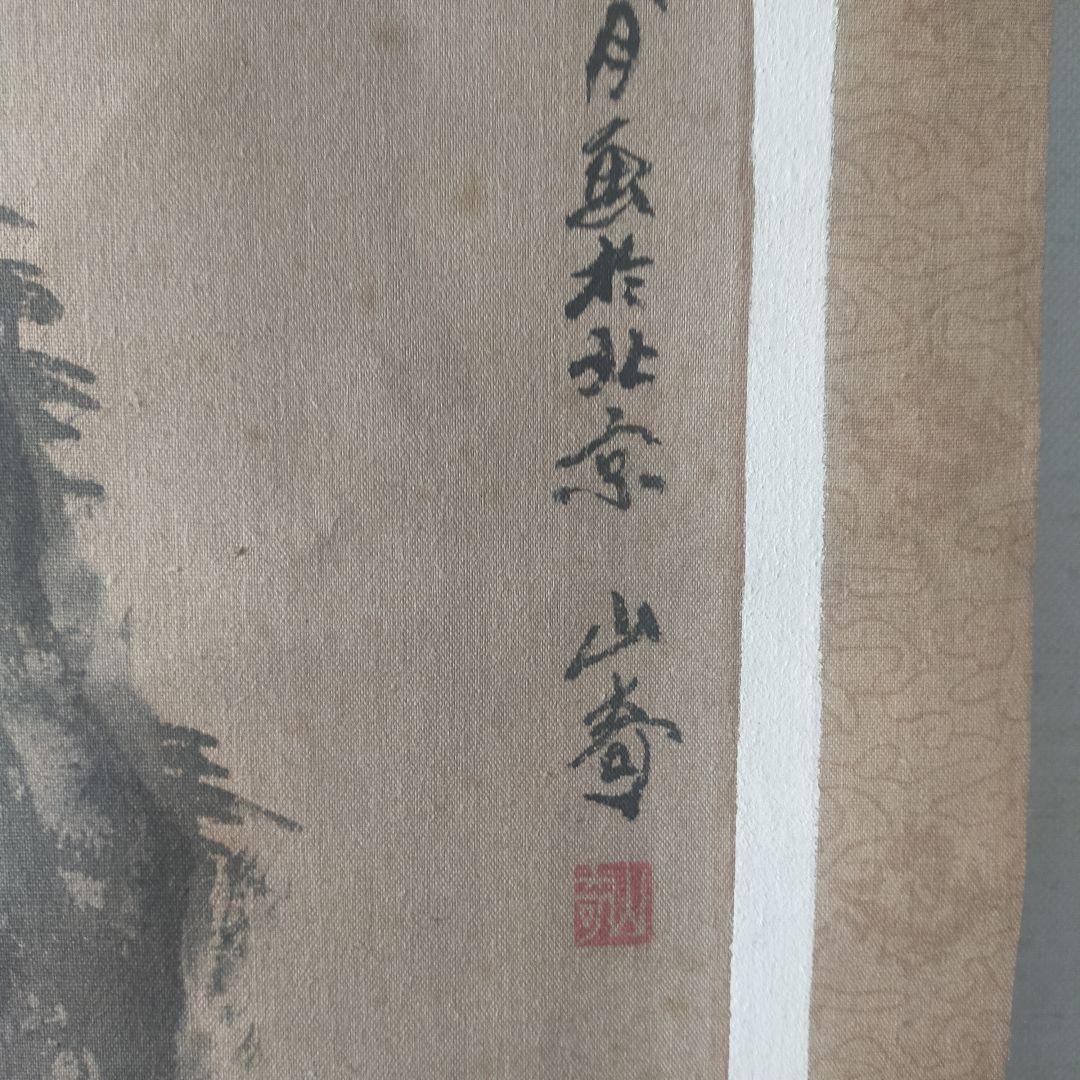 月畫於北京 山